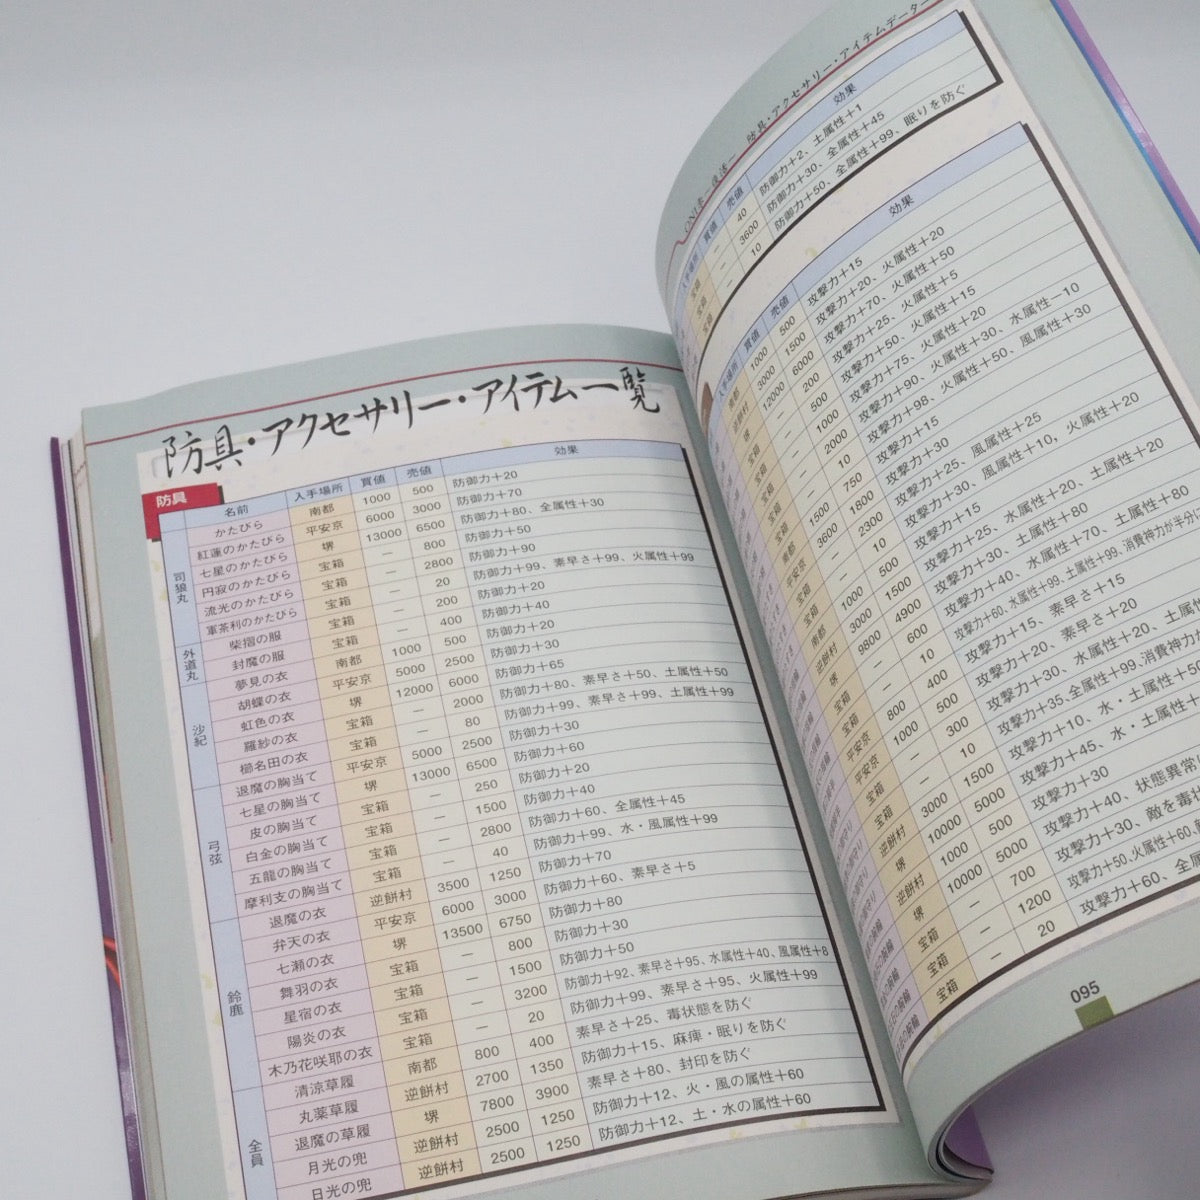 防具・アクセサリー・アイテム一覧
防具
名前 入手場所 買値 売値 効果
司狼丸
かたびら 南都 1000 500 防御力+20
紅蓮のかたびら 平安京 6000 3000 防御力+70
七星のかたびら 堺 13000 6500 防御力+80、全属性+30
円寂のかたびら 宝箱 — 800 防御力+50
流光のかたびら 宝箱 — 2800 防御力+90
軍荼利のかたびら 宝箱 — 20 防御力+99、素早さ+99、火属性+99
外道丸
柴摺の服 宝箱 — 200 防御力+20
封魔の服 宝箱 — 400 防御力+40
沙紀
夢見の衣 南都 1000 500 防御力+20
胡蝶の衣 平安京 5000 2500 防御力+30
虹色の衣 堺 12000 6000 防御力+65
羅紗の衣 宝箱 — 2000 防御力+80、素早さ+50、土属性+50
櫛名田の衣 宝箱 — 80 防御力+99、素早さ+99、土属性+99
弓弦
退魔の胸当て 平安京 5000 2500 防御力+30
七星の胸当て 堺 13000 6500 防御力+60
皮の胸当て 宝箱 — 250 防御力+20
白金の胸当て 宝箱 — 1500 防御力+40
五龍の胸当て 宝箱 — 2800 防御力+60、全属性+45
摩利支の胸当て 宝箱 — 40 防御力+99、水・風属性+99
鈴鹿
退魔の衣 逆餅村 3500 1250 防御力+70
弁天の衣 平安京 6000 3000 防御力+60、素早さ+5
七瀬の衣 堺 13500 6750 防御力+80
舞羽の衣 宝箱 — 800 防御力+30
星宿の衣 宝箱 — 1500 防御力+50
陽炎の衣 宝箱 — 3200 防御力+92、素早さ+95、水属性+40、風属性+8
木乃花咲耶の衣 宝箱 — 20 防御力+99、素早さ+95、火属性+99
全員
清涼草履 南都 800 400 素早さ+25、毒状態を防ぐ
丸薬草履 逆餅村 2700 1350 防御力+15、麻痺・眠りを防ぐ
退魔の草履 堺 7800 3900 素早さ+80、封印を防ぐ
月光の兜 逆餅村 2500 1250 防御力+12、火・風の属性+60
日光の兜 逆餅村 2500 1250 防御力+12、土・水の属性+60
防具・アクセサリー・アイテムデーター
入手場所 買値 売値 効果
宝箱 — 40 防御力+2、土属性+1
宝箱 — 3600 防御力+30、全属性+45
宝箱 — 10 防御力+50、全属性+99、眠りを防ぐ
入手場所 買値 売値 効果
南都 1000 500 攻撃力+15
逆餅村 3000 1500 攻撃力+20、火属性+20
堺 12000 6000 攻撃力+70、火属性+50
宝箱 — 200 攻撃力+25、火属性+5
宝箱 — 500 攻撃力+50、火属性+15
宝箱 — 1000 攻撃力+75、火属性+20
宝箱 — 2000 攻撃力+90、火属性+30、水属性−10
宝箱 — 10 攻撃力+98、火属性+50、風属性+30
南都 1500 750 攻撃力+15
平安京 3600 1800 攻撃力+30
宝箱 — 2300 攻撃力+25、風属性+25
宝箱 — 10 攻撃力+30、風属性+10，火属性+20
南都 1000 500 攻撃力+15
逆餅村 3000 1500 攻撃力+25、水属性+20、土属性+20
堺 9800 4900 攻撃力+30、土属性+80
宝箱 — 600 攻撃力+40、水属性+70、土属性+80
宝箱 — 10 攻撃力+60、水属性+99、土属性+99、消費神力が半分に
平安京 800 400 攻撃力+15、素早さ+15
平安京 1000 500 攻撃力+20、素早さ+20
宝箱 — 300 攻撃力+30、水属性+20、土属性
宝箱 — 10 攻撃力+35、全属性+99、消費神力
逆餅村 3000 1500 攻撃力+10、水・土属性+50
堺 10000 5000 攻撃力+45、水・土属性+
逆餅村 1000 500 攻撃力+30
堺 10000 5000 攻撃力+40、状態異常
宝箱 — 700 攻撃力+30、敵を毒状
宝箱 — 1200 攻撃力+50、火属性+60、
宝箱 — 20 攻撃力+60、全
095